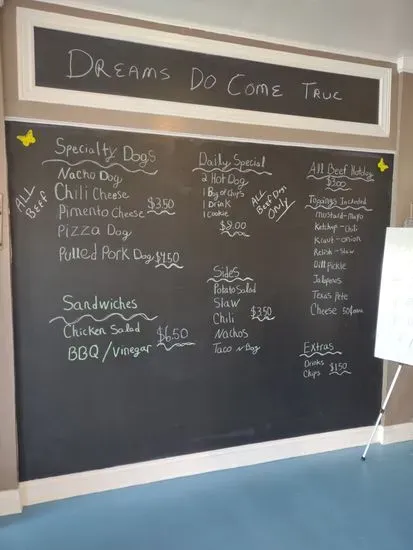 DREAMS DO COME TRUE
Specialty Dogs
ALL BEEF
Nacho Dog
Chili Cheese
Pimento Cheese $3.50
Pizza Dog
Pulled Pork Dog $4.50
Sandwiches
Chicken Salad $6.50
BBQ/Vinegar
Daily Special
2 Hot Dog
1 Bag of Chips
1 Drink
1 Cookie
$9.00
ALL Beef Dogs ONLY
Sides
Potato Salad
Slaw
Chili $3.50
Nachos
Taco N Bag
All Beef Hotdog
$3.00
Toppings Included
Mustard-Mayo
Ketchup-Chili
Kraut-onion
Relish-Slaw
Dill Pickle
Jalapenos
Texas Pete
Cheese 50¢
Extras
Drinks
Chips $1.50